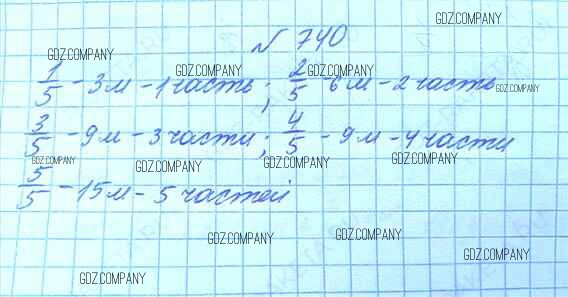 № 740
1/5 - 3м - 1 часть; 2/5 - 6м - 2 часть
3/5 - 9м - 3 части; 4/5 - 9м - 4 части
5/5 - 15м - 5 частей
GDZ.COMPANY
GDZ.COMPANY
GDZ.COMPANY
GDZ.COMPANY
GDZ.COMPANY
GDZ.COMPANY
GDZ.COMPANY
GDZ.COMPANY
GDZ.COMPANY
GDZ.COMPANY
GDZ.COMPANY
GDZ.COMPANY
GDZ.COMPANY
GDZ.COMPANY